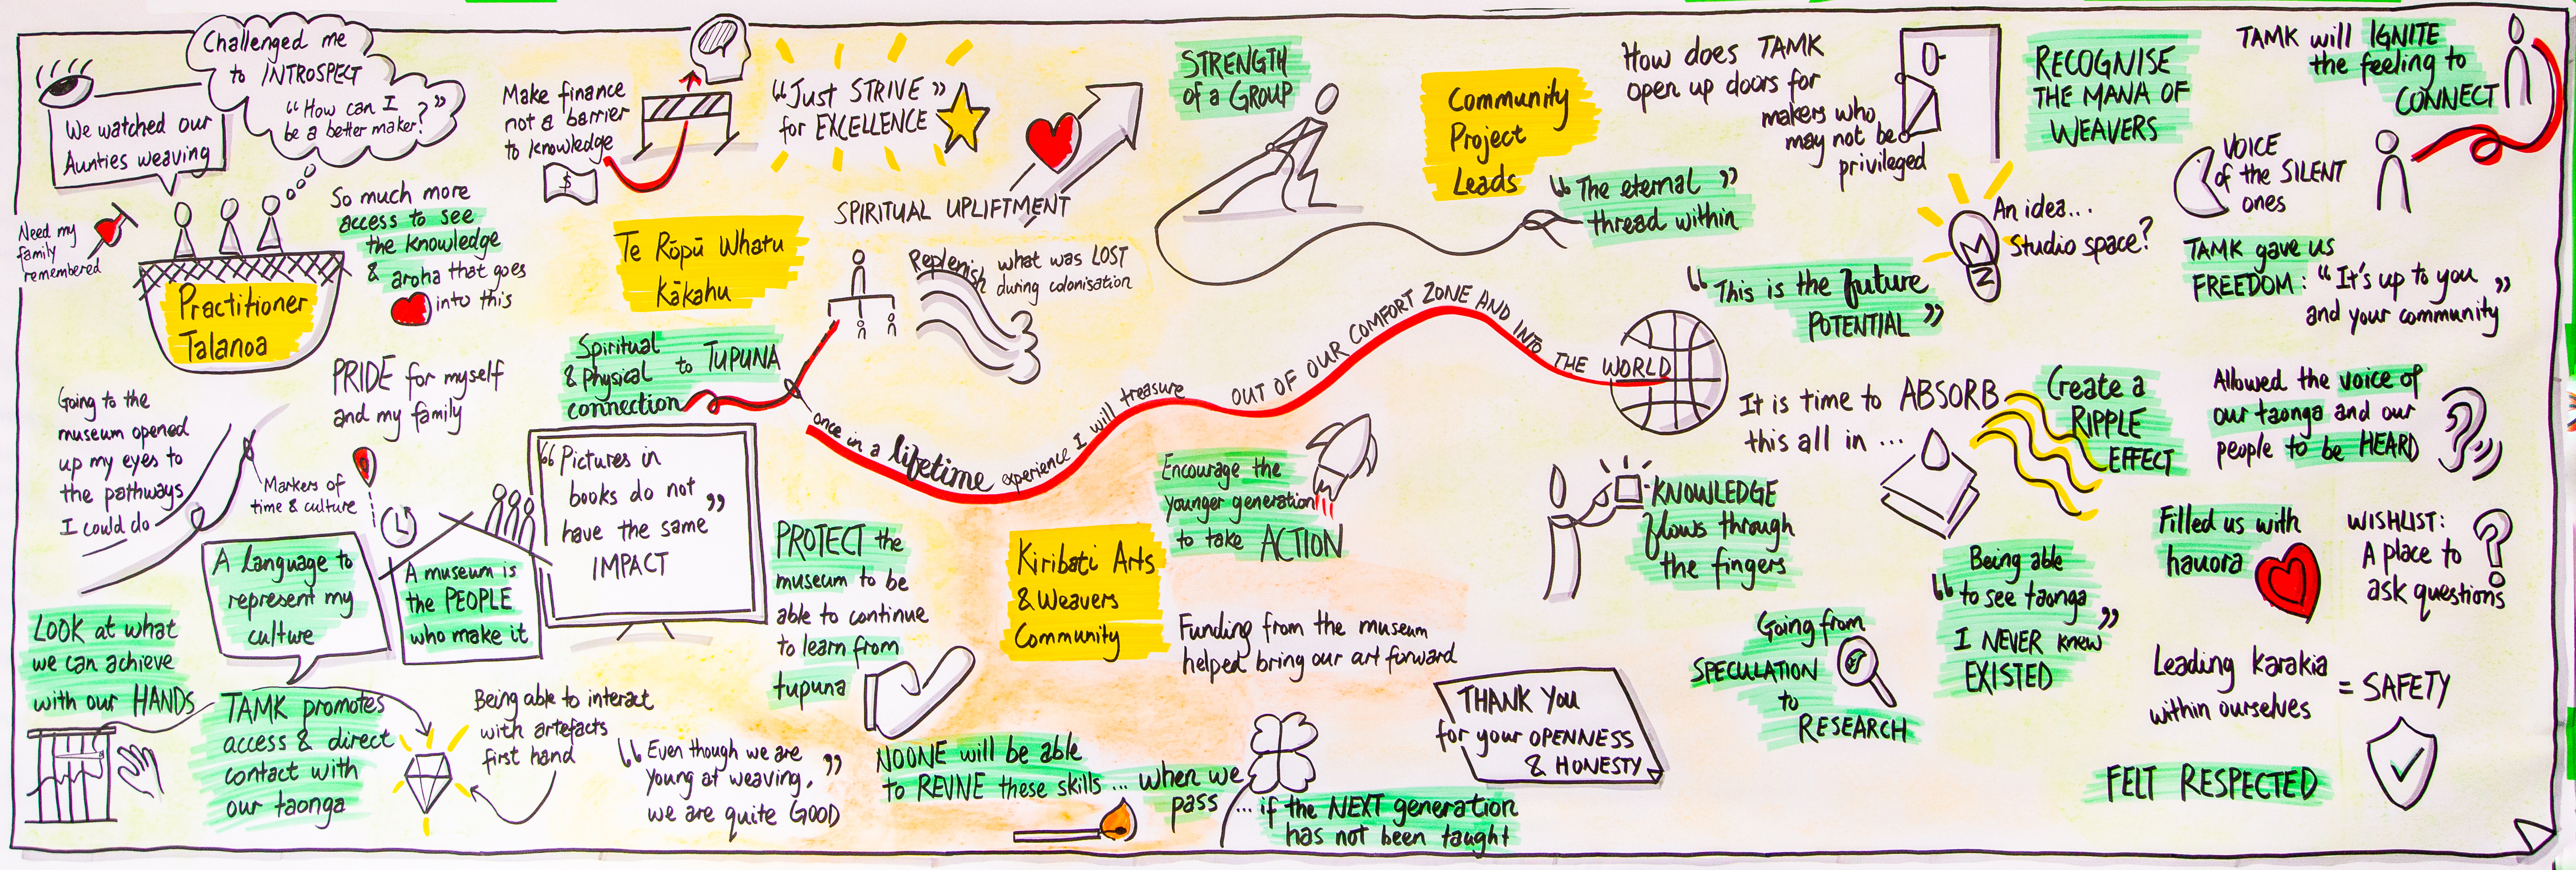 Challenged me
to INTROSPECT
"How can I
be a better maker?"
We watched our
Aunties weaving
Need my
family
remembered
So much more
access to see
the knowledge
& aroha that goes
into this
Practitioner
Talanoa
PRIDE for myself
and my family
Going to the
museum opened
up my eyes to
the pathways
I could do
Markers of
time & culture
A language to
represent my
culture
A museum is
the PEOPLE
who make it
"Pictures in
books do not
have the same"
IMPACT
LOOK at what
we can achieve
with our HANDS
TAMK promotes
access & direct
contact with
our taonga
Being able to interact
with artefacts
first hand
"Even though we are
young at weaving,
we are quite GOOD"
Make finance
not a barrier
to knowledge
$
"Just STRIVE"
for EXCELLENCE
SPIRITUAL UPLIFTMENT
Te Rōpū Whatu
Kākahu
Replenish what was LOST
during colonisation
Spiritual
& Physical to TUPUNA
connection
once in a lifetime experience I will treasure
OUT OF OUR COMFORT ZONE AND INTO THE WORLD
PROTECT the
museum to be
able to continue
to learn from
tupuna
Kiribati Arts
& Weavers
Community
Encourage the
younger generation
to take ACTION
Funding from the museum
helped bring our art forward
NOONE will be able
to REVIVE these skills... when we
pass ...if the NEXT generation
has not been taught
THANK YOU
for your OPENNESS
& HONESTY
STRENGTH
of a GROUP
Community
Project
Leads
How does TAMK
open up doors for
makers who
may not be
privileged
"The eternal"
thread within
"This is the future
POTENTIAL"
An idea...
Studio space?
RECOGNISE
THE MANA OF
WEAVERS
TAMK will IGNITE
the feeling to
CONNECT
VOICE
of the SILENT
ones
TAMK gave us
FREEDOM: "It's up to you
and your community"
It is time to ABSORB
this all in ...
Create a
RIPPLE
EFFECT
Allowed the voice of
our taonga and our
people to be HEARD
KNOWLEDGE
flows through
the fingers
Going from
SPECULATION
to
RESEARCH
Being able
"to see taonga"
I NEVER knew
EXISTED
Filled us with
hauora
WISHLIST:
A place to
ask questions
Leading karakia
within ourselves = SAFETY
FELT RESPECTED